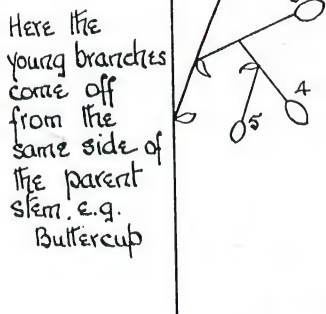 Here the
young branches
come off
from the
same side of
the parent
stem. e.g.
Buttercup
4
5